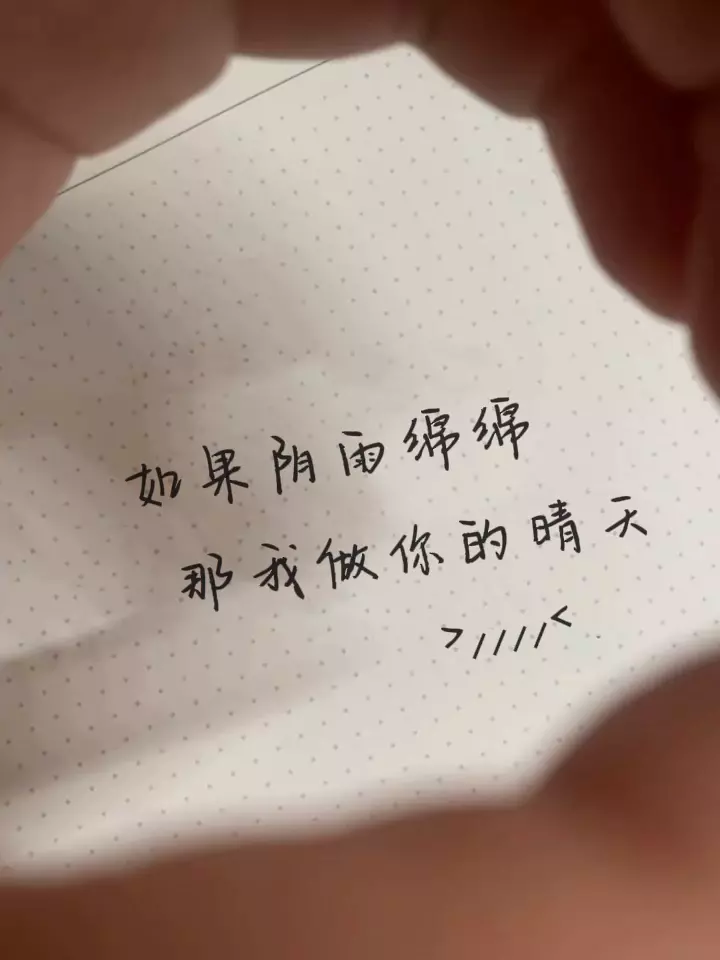 如果阴雨绵绵
那我做你的晴天
>////<